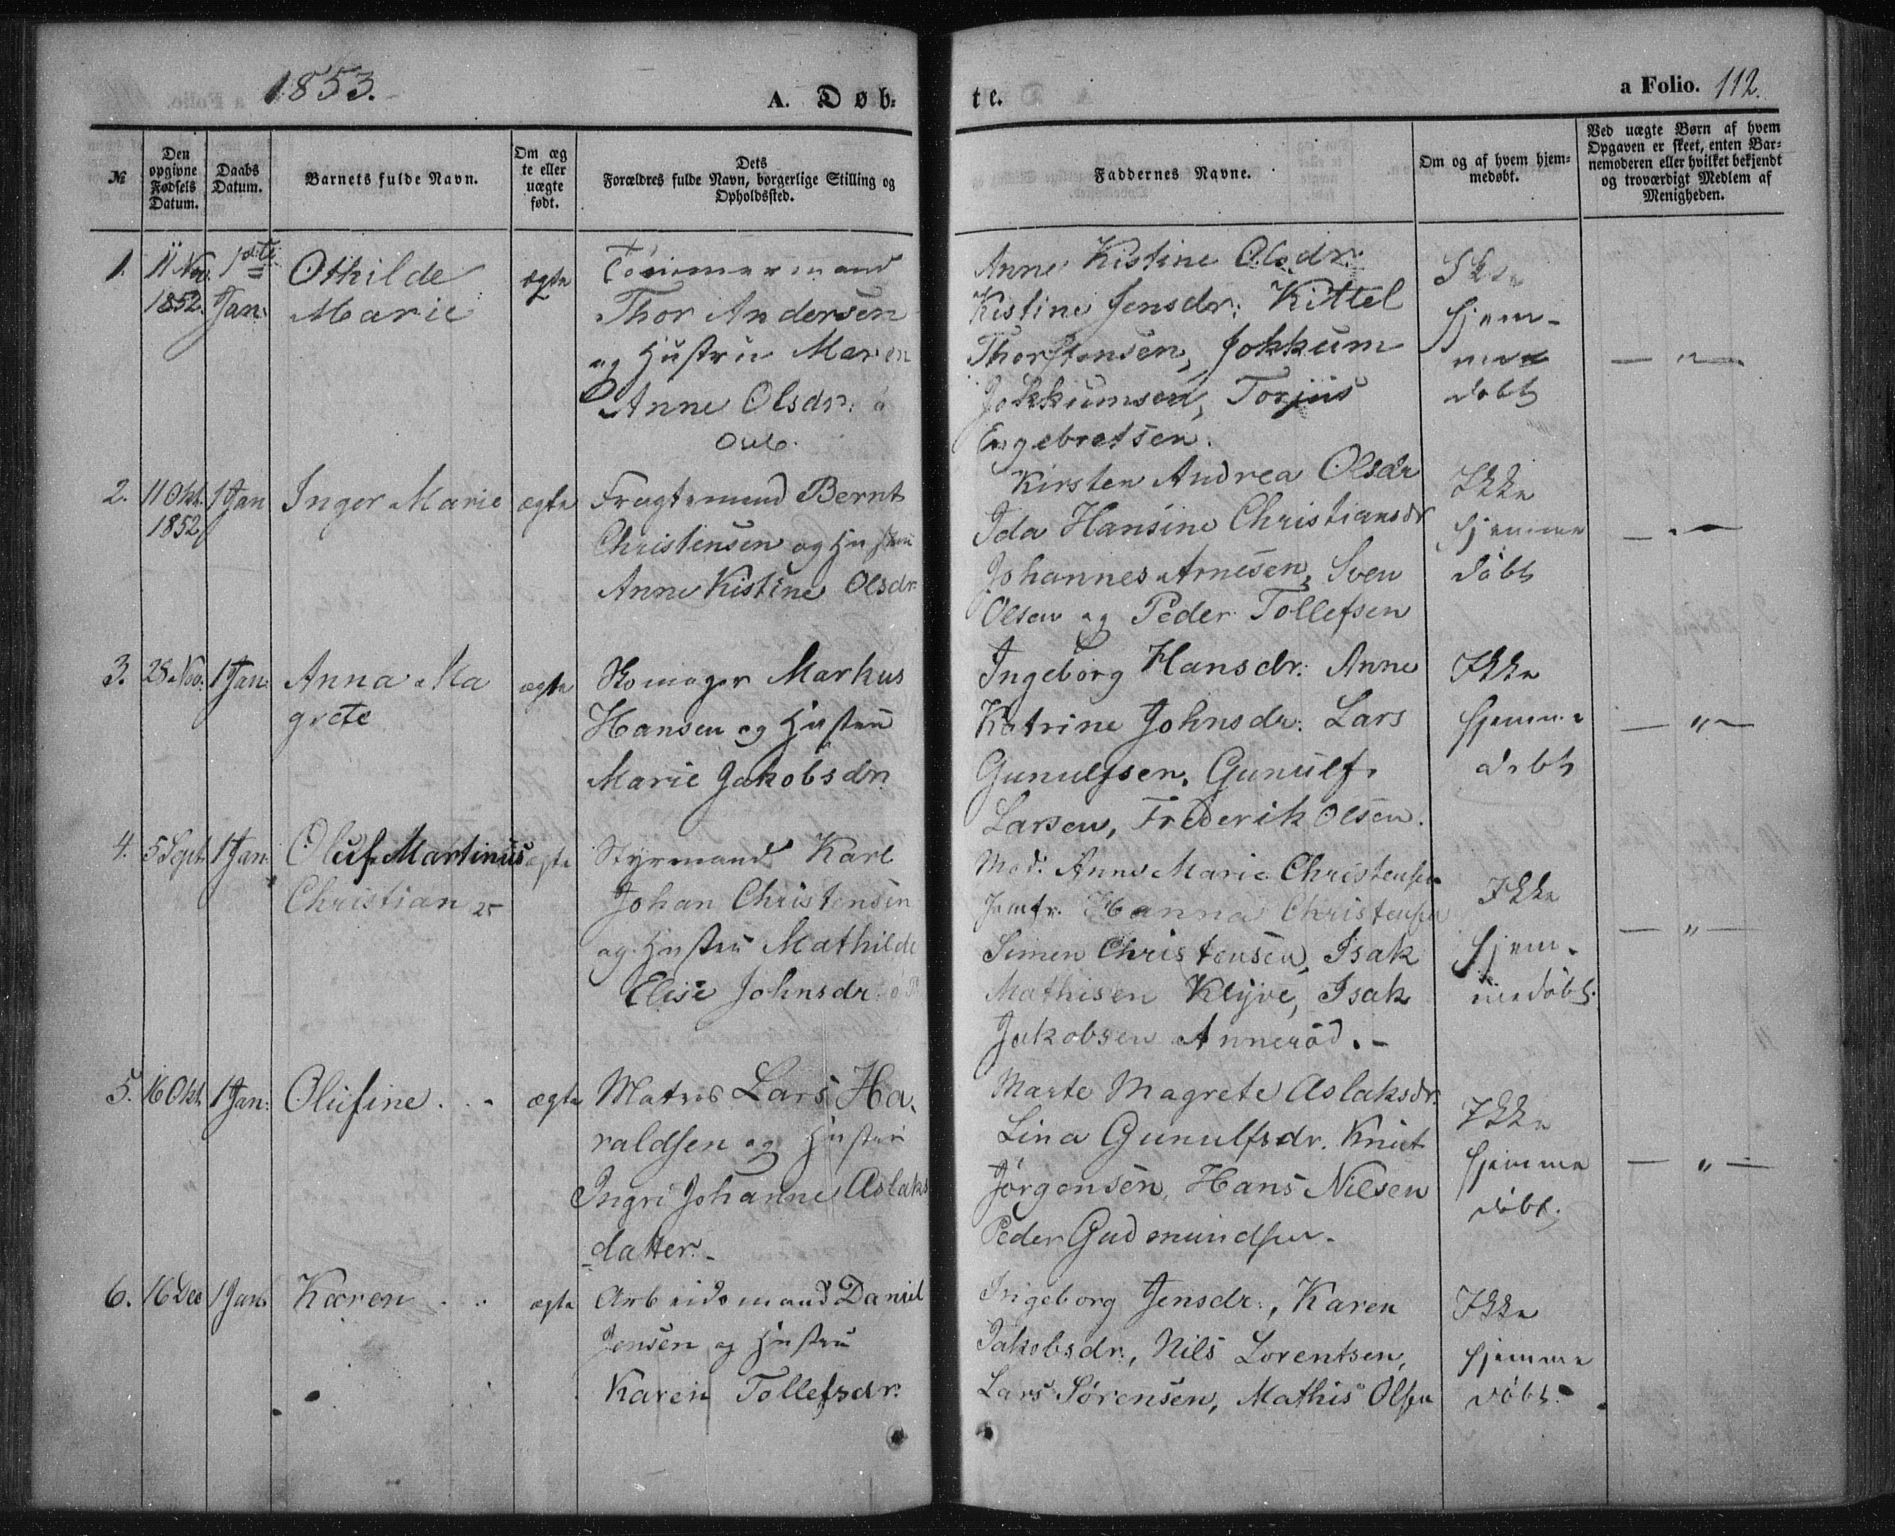 1853.
A. Døb-
te.
a Folio. 112.
№
Den opgivne Fødsels Datum.
Daabs Datum.
Barnets fulde Navn.
Om ægte eller uægte født.
Dets Forældres fulde Navn, borgerlige Stilling og Opholdssted.
Faddernes Navne.
Om og af hvem hjemmedøbt.
Ved uægte Børn af hvem Opgaven er skeet, enten Barnemoderen eller hvilket bekjendt og troværdigt Medlem af Menigheden.
1. 11 Nov. 1852. 1ste Jan.
Othilde
Marie
ægte
Tömmermand
Thor Andersen
og Hustru Maren
Anne Olsdr.
Anne Kistine Olsdr.
Kistine Jensdr. Kittel
Thorstensen, Jokkum
Jokkumsen, Torjus
Engebretsen.
Ikke
hjem-
me
döbt
— " —
2. 11 Okt. 1852 1 Jan
Inger Marie
ægte
Fragtemand Bernt
Christensen og Hustru
Anne Kistine Olsdr.
Kirsten Andrea Olsdr
Ida Hansine Christiansdr
Johannes Arnesen, Sven
Olsen og Peder Tollefsen
Ikke
hjemme
döbt
— " —
3. 28 Nov. 1 Jan.
Anna Ma
grete
ægte
Skomager Markus
Hansen og Hustru
Marie Jakobsdr.
Ingeborg Hansdr. Anne
Katrine Johnsdr. Lars
Gunulfsen, Gunulf
Larsen, Frederik Olsen.
Ikke
hjemme
döbt
— " —
4. 5 Sept. 1 Jan.
Oluf Martinus
Christian
ægte
Styrmand Karl
Johan Christensen
og Hustru Mathilde
Elise Johnsdr.
Mad. Anne Marie Christensen
Jomfr. Hanna Christensen
Simen Christensen, Isak
Mathisen Klyve, Isak
Jakobsen Anneröd. -
Ikke
hjem-
medöbt.
— " —
5. 16 Okt. 1 Jan.
Olufine . . -
ægte
Matros Lars Ha-
raldsen og Hustru
Ingri Johanne Aslaks
datter. -
Marte Magrete Aslaksdr.
Lina Gunulfsdr. Knut
Jørgensen, Hans Nilsen
Peder Gudmundsen -
Ikke
hjemme
döbt.
— " —
6. 16 Dec 1 Jan.
Karen . . .
ægte
Arbeidsmand Daniel
Jensen og Hustru
Karen Tollefsdr.
Ingeborg Jensdr., Karen
Jakobsdr., Nils Lorentsen,
Lars Sørensen, Mathis Olsen
Ikke
hjemme
döbt.